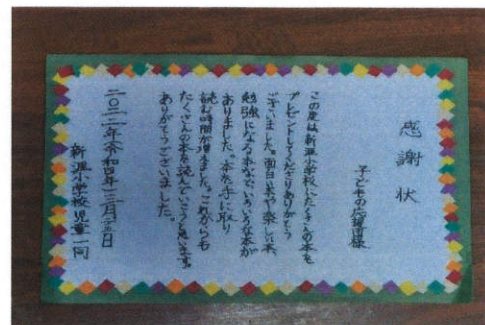 感謝状
子どもの応援団様
この度は新涯小学校にたくさんの本を
プレゼントしてくださりありがとう
ございました。面白い本や楽しい本、
勉強になる本など、いろいろな本が
ありました。本を手に取り
読む時間が増えました。これからも
たくさんの本を読んでいこうと思います。
ありがとうございました。
二〇二二年令和四年十二月
新涯小学校児童一同